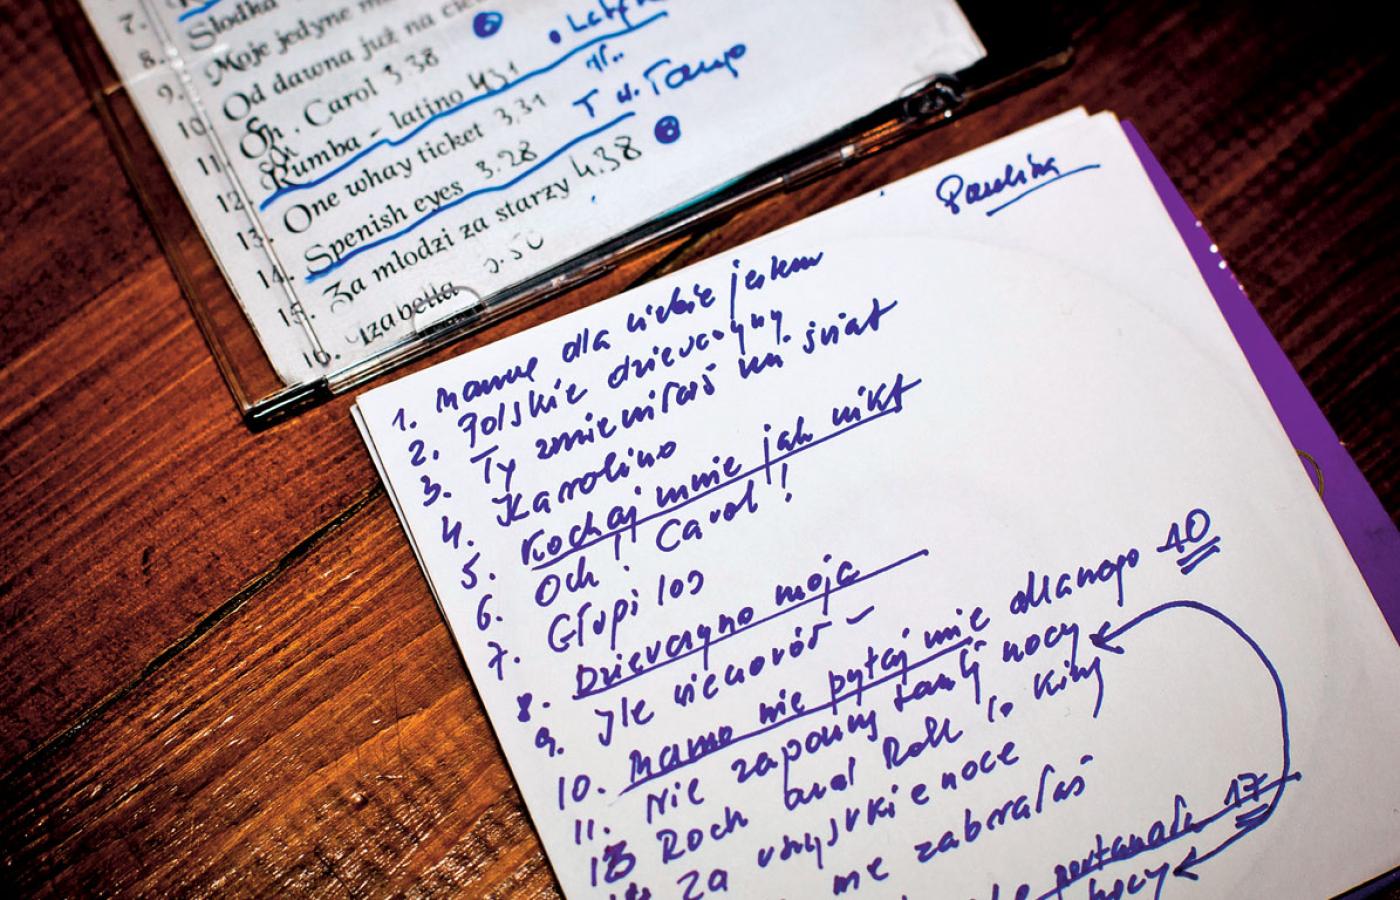 7.
Słodka
8. Moje jedyne
9. Od dawna już na
10. Oh. Carol 3.38
11. Rumba - latino 4.31
12. One whay ticket 3.31
13. Spenish eyes 3.28
T w. Tango
14. Za mlodzi za starzy 4.38
15. Izabella 3.50
16.
Paulina
1. Mamę dla ciebie jestem
2. Polskie dziewczyny
3. Ty zmieniłaś mi świat
4. Karolino
5. Kochaj mnie jak nikt
6. Och! Carol!
7. Głupi los
8. Dziewczyno moja
9. Jle wieczorów
10. Mamo nie pytaj mnie dlaczego 10
11. Nie zapomnę tamtej nocy
13 Roch and Roll is King
Za wszystkie noce
me zabrałaś
17
nocy